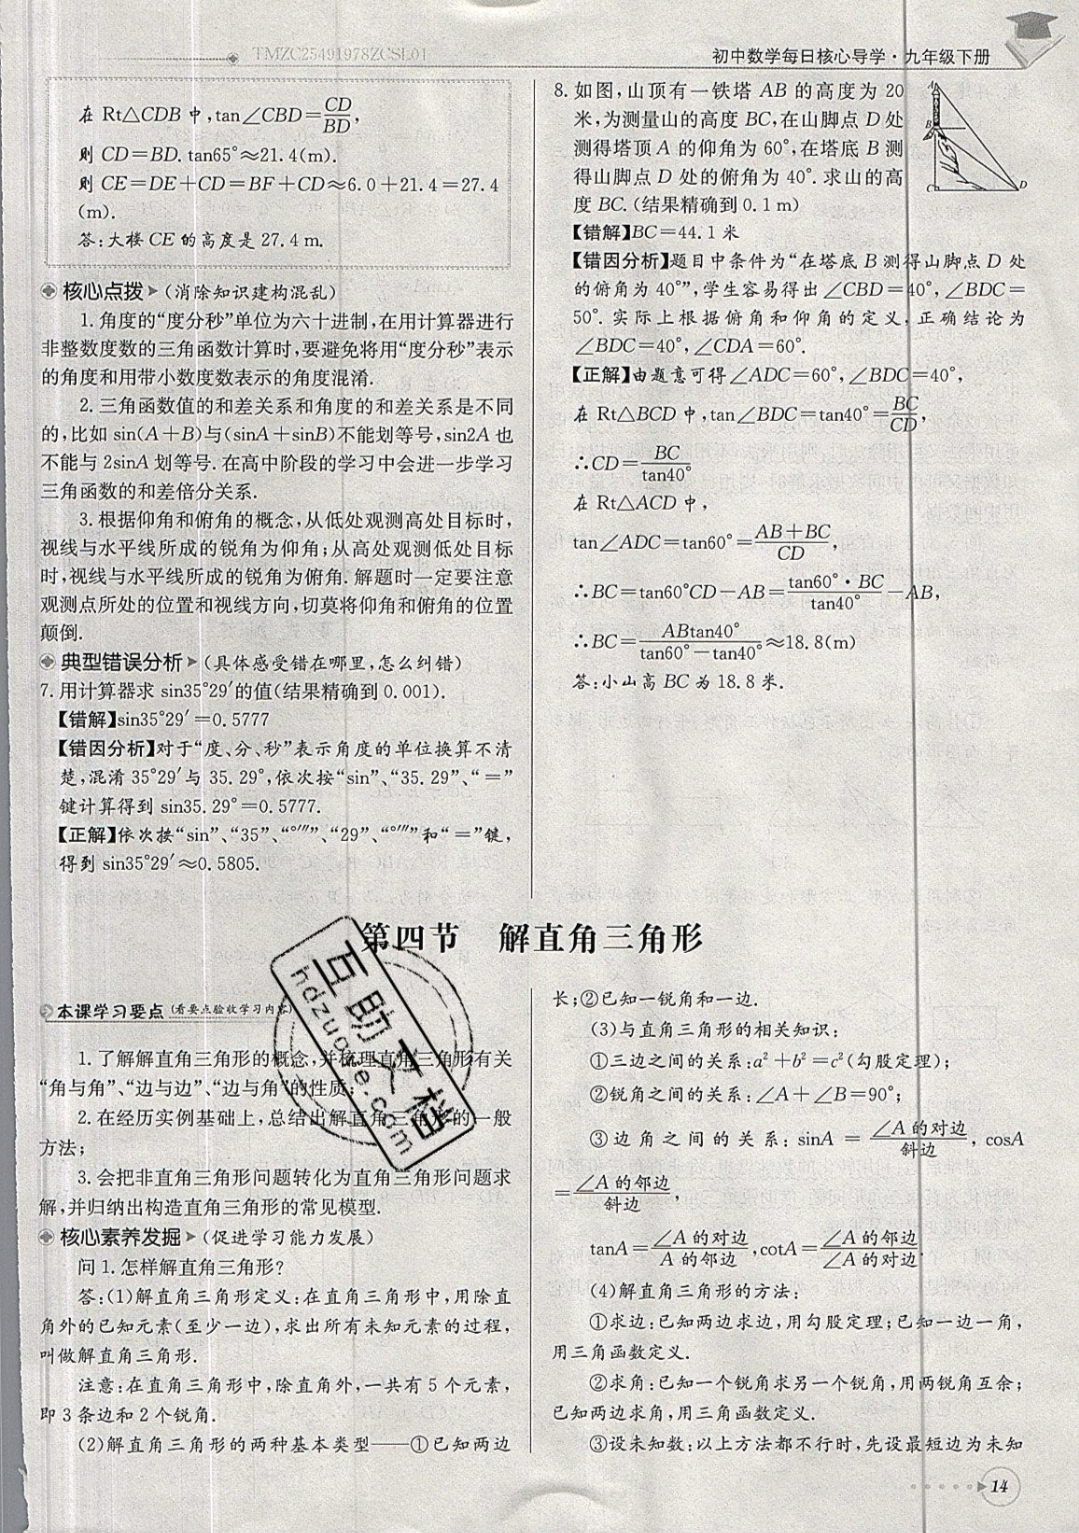 TMZC25491978ZCSL01
初中数学每日核心导学·九年级下册
在 Rt△CDB 中,tan∠CBD=CD/BD,
则 CD=BD.tan65°≈21.4(m).
则 CE=DE+CD=BF+CD≈6.0+21.4=27.4
(m).
答:大楼 CE 的高度是 27.4 m.
核心点拨➤(消除知识建构混乱)
1.角度的“度分秒”单位为六十进制,在用计算器进行
非整数度数的三角函数计算时,要避免将用“度分秒”表示
的角度和用带小数度数表示的角度混淆.
2.三角函数值的和差关系和角度的和差关系是不同
的,比如 sin(A+B)与(sinA+sinB)不能划等号,sin2A 也
不能与 2sinA 划等号.在高中阶段的学习中会进一步学习
三角函数的和差倍分关系.
3.根据仰角和俯角的概念,从低处观测高处目标时,
视线与水平线所成的锐角为仰角;从高处观测低处目标
时,视线与水平线所成的锐角为俯角.解题时一定要注意
观测点所处的位置和视线方向,切莫将仰角和俯角的位置
颠倒.
典型错误分析➤(具体感受错在哪里,怎么纠错)
7.用计算器求 sin35°29′的值(结果精确到 0.001).
【错解】sin35°29′=0.5777
【错因分析】对于“度、分、秒”表示角度的单位换算不清
楚,混淆 35°29′与 35.29°,依次按“sin”、“35.29”、“=”
键计算得到 sin35.29°=0.5777.
【正解】依次按“sin”、“35”、“°′″”、“29”、“°′″”和“=”键,
得到 sin35°29′≈0.5805.
8.如图,山顶有一铁塔 AB 的高度为 20
米,为测量山的高度 BC,在山脚点 D 处
测得塔顶 A 的仰角为 60°,在塔底 B 测
得山脚点 D 处的俯角为 40°.求山的高
度 BC.(结果精确到 0.1 m)
A
B
C
D
【错解】BC=44.1 米
【错因分析】题目中条件为“在塔底 B 测得山脚点 D 处
的俯角为 40°”,学生容易得出∠CBD=40°,∠BDC=
50°.实际上根据俯角和仰角的定义,正确结论为
∠BDC=40°,∠CDA=60°.
【正解】由题意可得∠ADC=60°,∠BDC=40°,
在 Rt△BCD 中,tan∠BDC=tan40°=BC/CD,
∴CD=BC/tan40°
在 Rt△ACD 中,
tan∠ADC=tan60°=AB+BC/CD,
∴BC=tan60°CD-AB=tan60°·BC/tan40°-AB,
∴BC=ABtan40°/tan60°-tan40°≈18.8(m)
答:小山高 BC 为 18.8 米.
第四节 解直角三角形
本课学习要点(看要点验收学习内容)
1.了解解直角三角形的概念,并梳理直角三角形有关
“角与角”、“边与边”、“边与角”的性质;
2.在经历实例基础上,总结出解直角三角形的一般
方法;
3.会把非直角三角形问题转化为直角三角形问题求
解,并归纳出构造直角三角形的常见模型.
核心素养发掘➤(促进学习能力发展)
问 1.怎样解直角三角形?
答:(1)解直角三角形定义:在直角三角形中,用除直
角外的已知元素(至少一边),求出所有未知元素的过程,
叫做解直角三角形.
注意:在直角三角形中,除直角外,一共有 5 个元素,
即 3 条边和 2 个锐角.
(2)解直角三角形的两种基本类型——①已知两边
长;②已知一锐角和一边.
(3)与直角三角形的相关知识:
①三边之间的关系:a²+b²=c²(勾股定理);
②锐角之间的关系:∠A+∠B=90°;
③边角之间的关系:sinA=∠A的对边/斜边,cosA
=∠A的邻边/斜边,
tanA=∠A的对边/∠A的邻边,cotA=∠A的邻边/∠A的对边.
(4)解直角三角形的方法:
①求边:已知两边求边,用勾股定理;已知一边一角,
用三角函数定义.
②求角:已知一个锐角求另一个锐角,用两锐角互余;
已知两边求角,用三角函数定义.
③设未知数:以上方法都不行时,先设最短边为未知
互助文档
hdzuoye.com
14